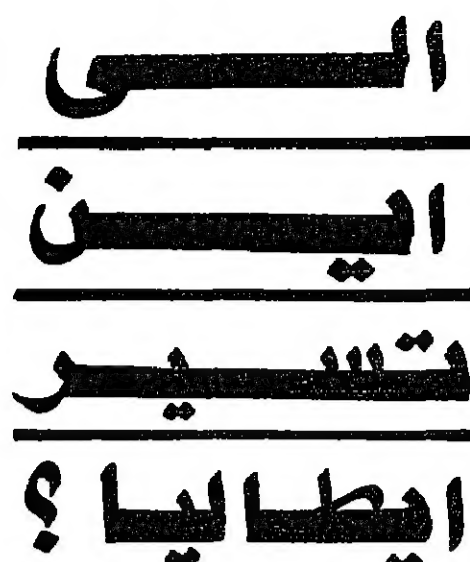 الى
اين
تسير
ايطاليا ؟